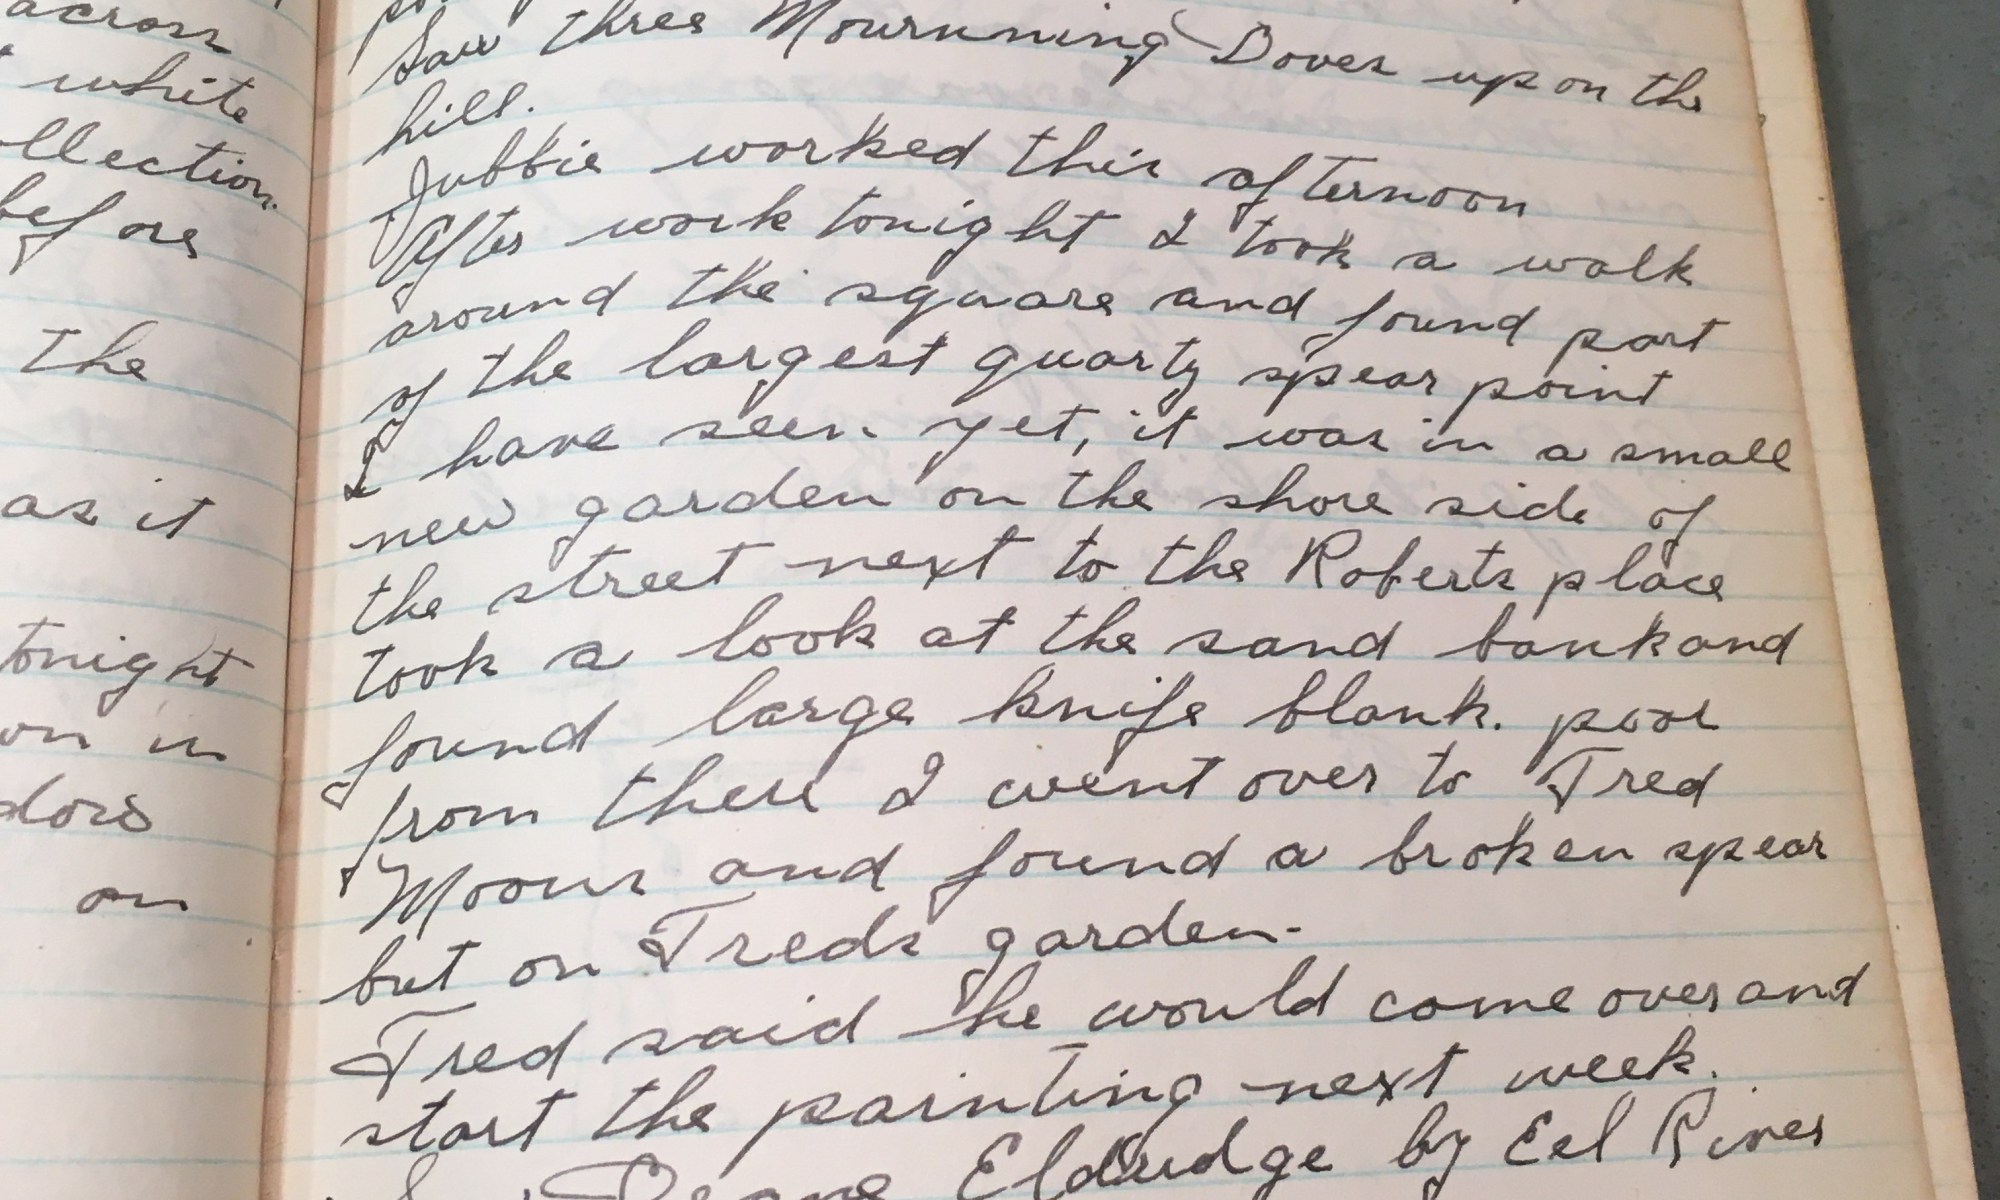 across
white
llection
before
the
as it
tonight
on in
dors
on
Saw three Mournning Doves up on the
hill.
Jubbie worked this afternoon
After work tonight I took a walk
around the square and found part
of the largest quartz spear point
I have seen yet, it was in a small
new garden on the shore side of
the street next to the Roberts place
took a look at the sand bank and
found large knife blank. poor
from there I went over to Fred
Moons and found a broken spear
but on Freds garden.
Fred said he would come over and
start the painting next week.
Eldridge by Eel River